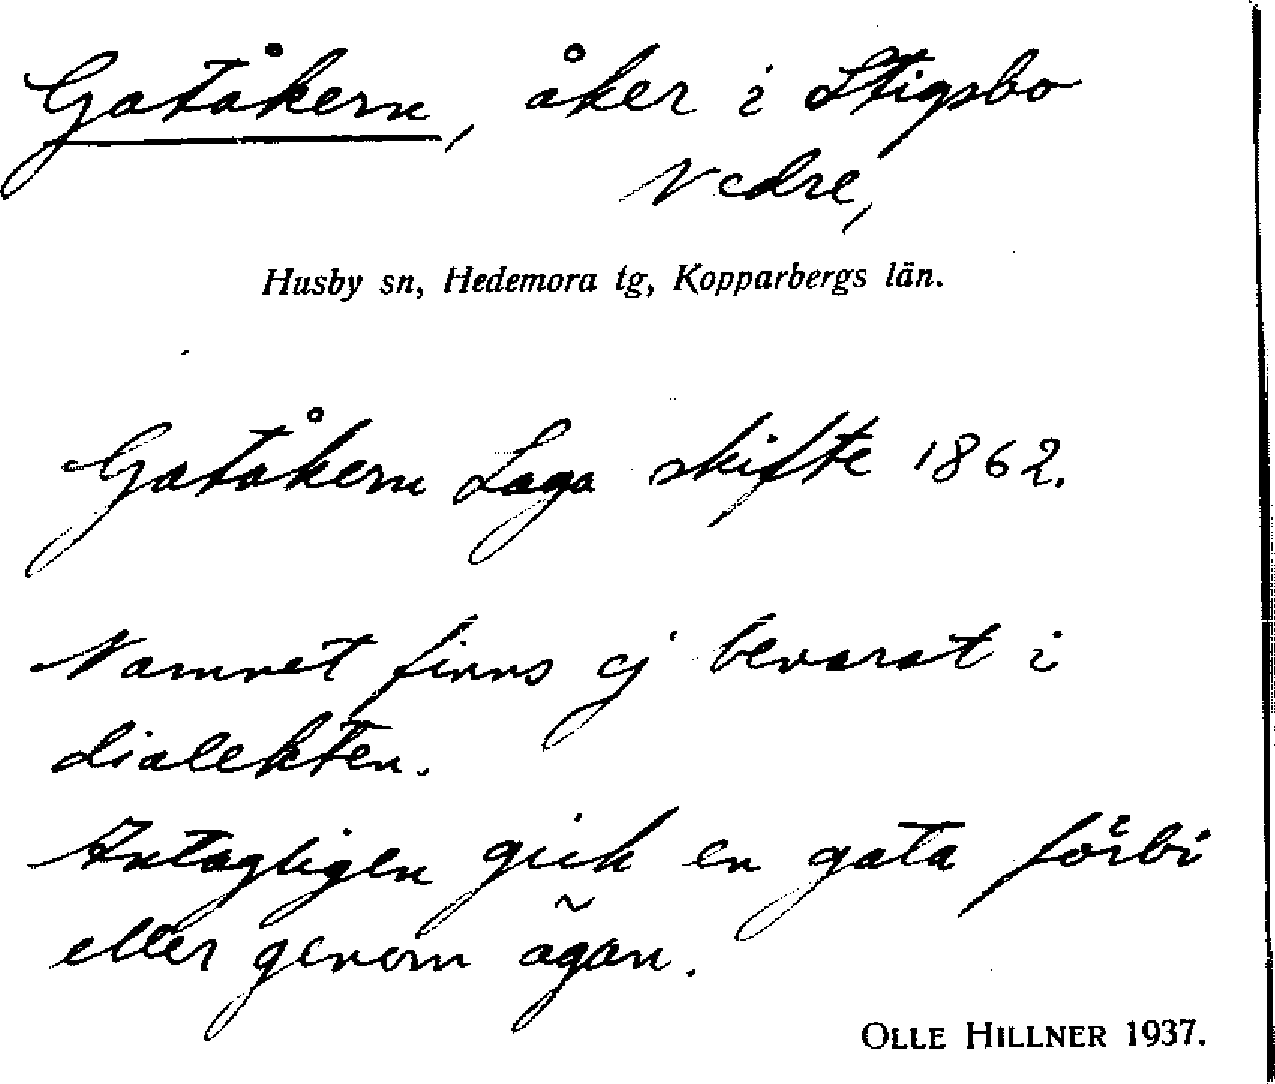 Gatåkern, åker i Stigsbo
Nedre,
Husby sn, Hedemora tg, Kopparbergs län.
Gatåkern Laga skifte 1862.
Namnet finns ej bevarat i
dialekten.
Antagligen gick en gata förbi
eller genom ägan.
OLLE HILLNER 1937.